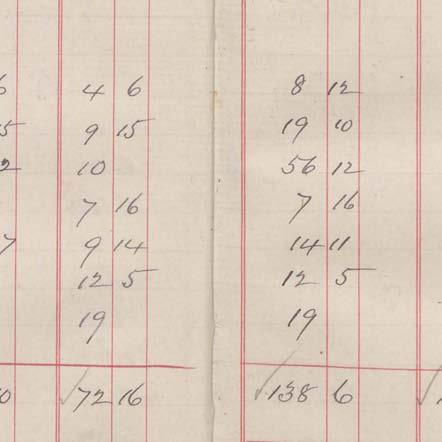 6 4 6 8 12
5 9 15 19 10
2 10 56 12
7 16 7 16
7 9 14 14 11
12 5 12 5
19 19
0 ✓72 16 ✓138 6